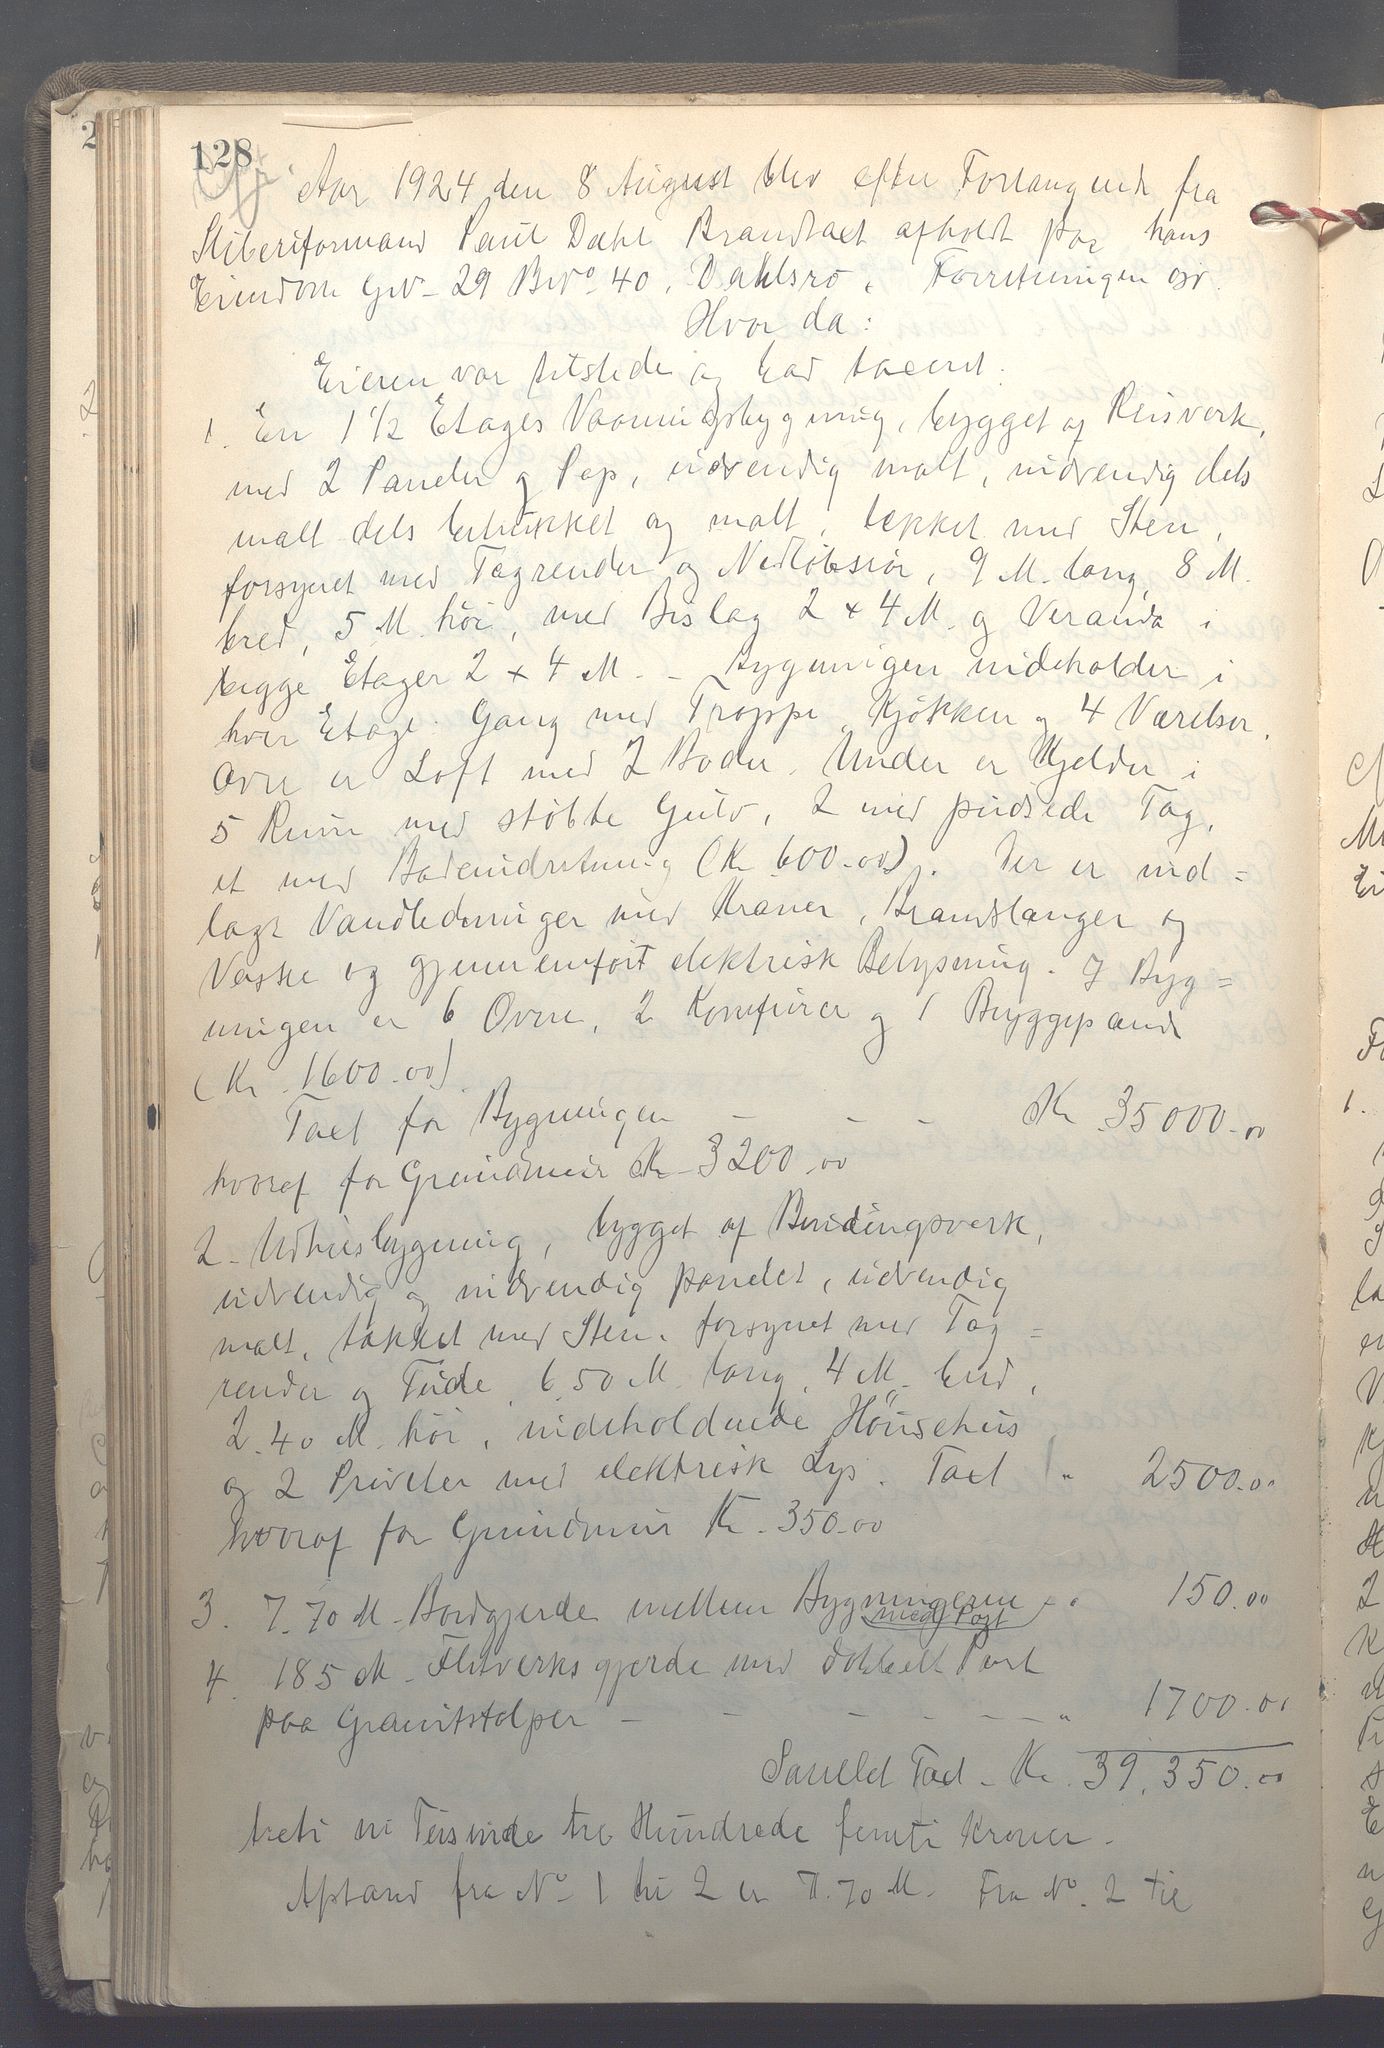 128
Aar 1924 den 8 August blev efter Forlangende fra
Sliberiformand Paul Dahl Brandtaxt afholdt paa hans
Eiendom Gno 29 Bno 40, Dahlsro. Forretningen
Hvor da:
Eieren var tilstede og lod taxert.
1. En 1 1/2 Etages Vaaningsbygning, bygget af Reisverk,
med 2 Paneler og Pap, udvendig malt, indvendig dels
malt dels betrukket og malt, tækket med Sten,
forsynet med Tagrender og Nedløbsrør, 9 M. lang, 8 M.
bred, 5 M. høi, med Bislag 2 x 4 M. og Veranda i
begge Etager 2 x 4 M. - Bygningen indeholder i
hver Etage: Gang med Trappe, Kjøkken og 4 Værelser.
Over er Loft med 2 Boder. Under er Kjelder i
5 Rum med støbte Gulv, 2 med pudsede Tag,
et med Badeindretning (Kr 600.00). Der er ind=
lagt Vandledninger med Kraner, Brandslanger og
Vaske og gjennemført elektrisk Belysning. I Byg=
ningen er 6 Ovne, 2 Komfurer og 1 Bryggepande
(Kr. 1600.00).
Taxt for Bygningen - - - Kr. 35000.00
hvoraf for Grundmur Kr 3200.00
2. Udhusbygning, bygget af Bindingsverk,
udvendig og indvendig panelet, udvendig
malt, tækket med Sten, forsynet med Tag=
render og Tude, 6.50 M. lang, 4 M. bred,
2.40 M. høi, indeholdende Hønsehus
og 2 Priveter med elektrisk Lys. Taxt " 2500.00
hvoraf for Grundmur Kr. 350.00
3. 7.70 M. Bordgjerde mellem Bygningerne - " 150.00
med Port
4. 185 M. Fletverksgjerde med dobbelt Port
paa Granitstolper - - - - - - " 1700.00
Samlet Taxt - Kr. 39,350.00
treti ni Tusinde tre Hundrede femti Kroner.
Afstand fra No 1 til 2 er 7.70 M. Fra No. 2 til